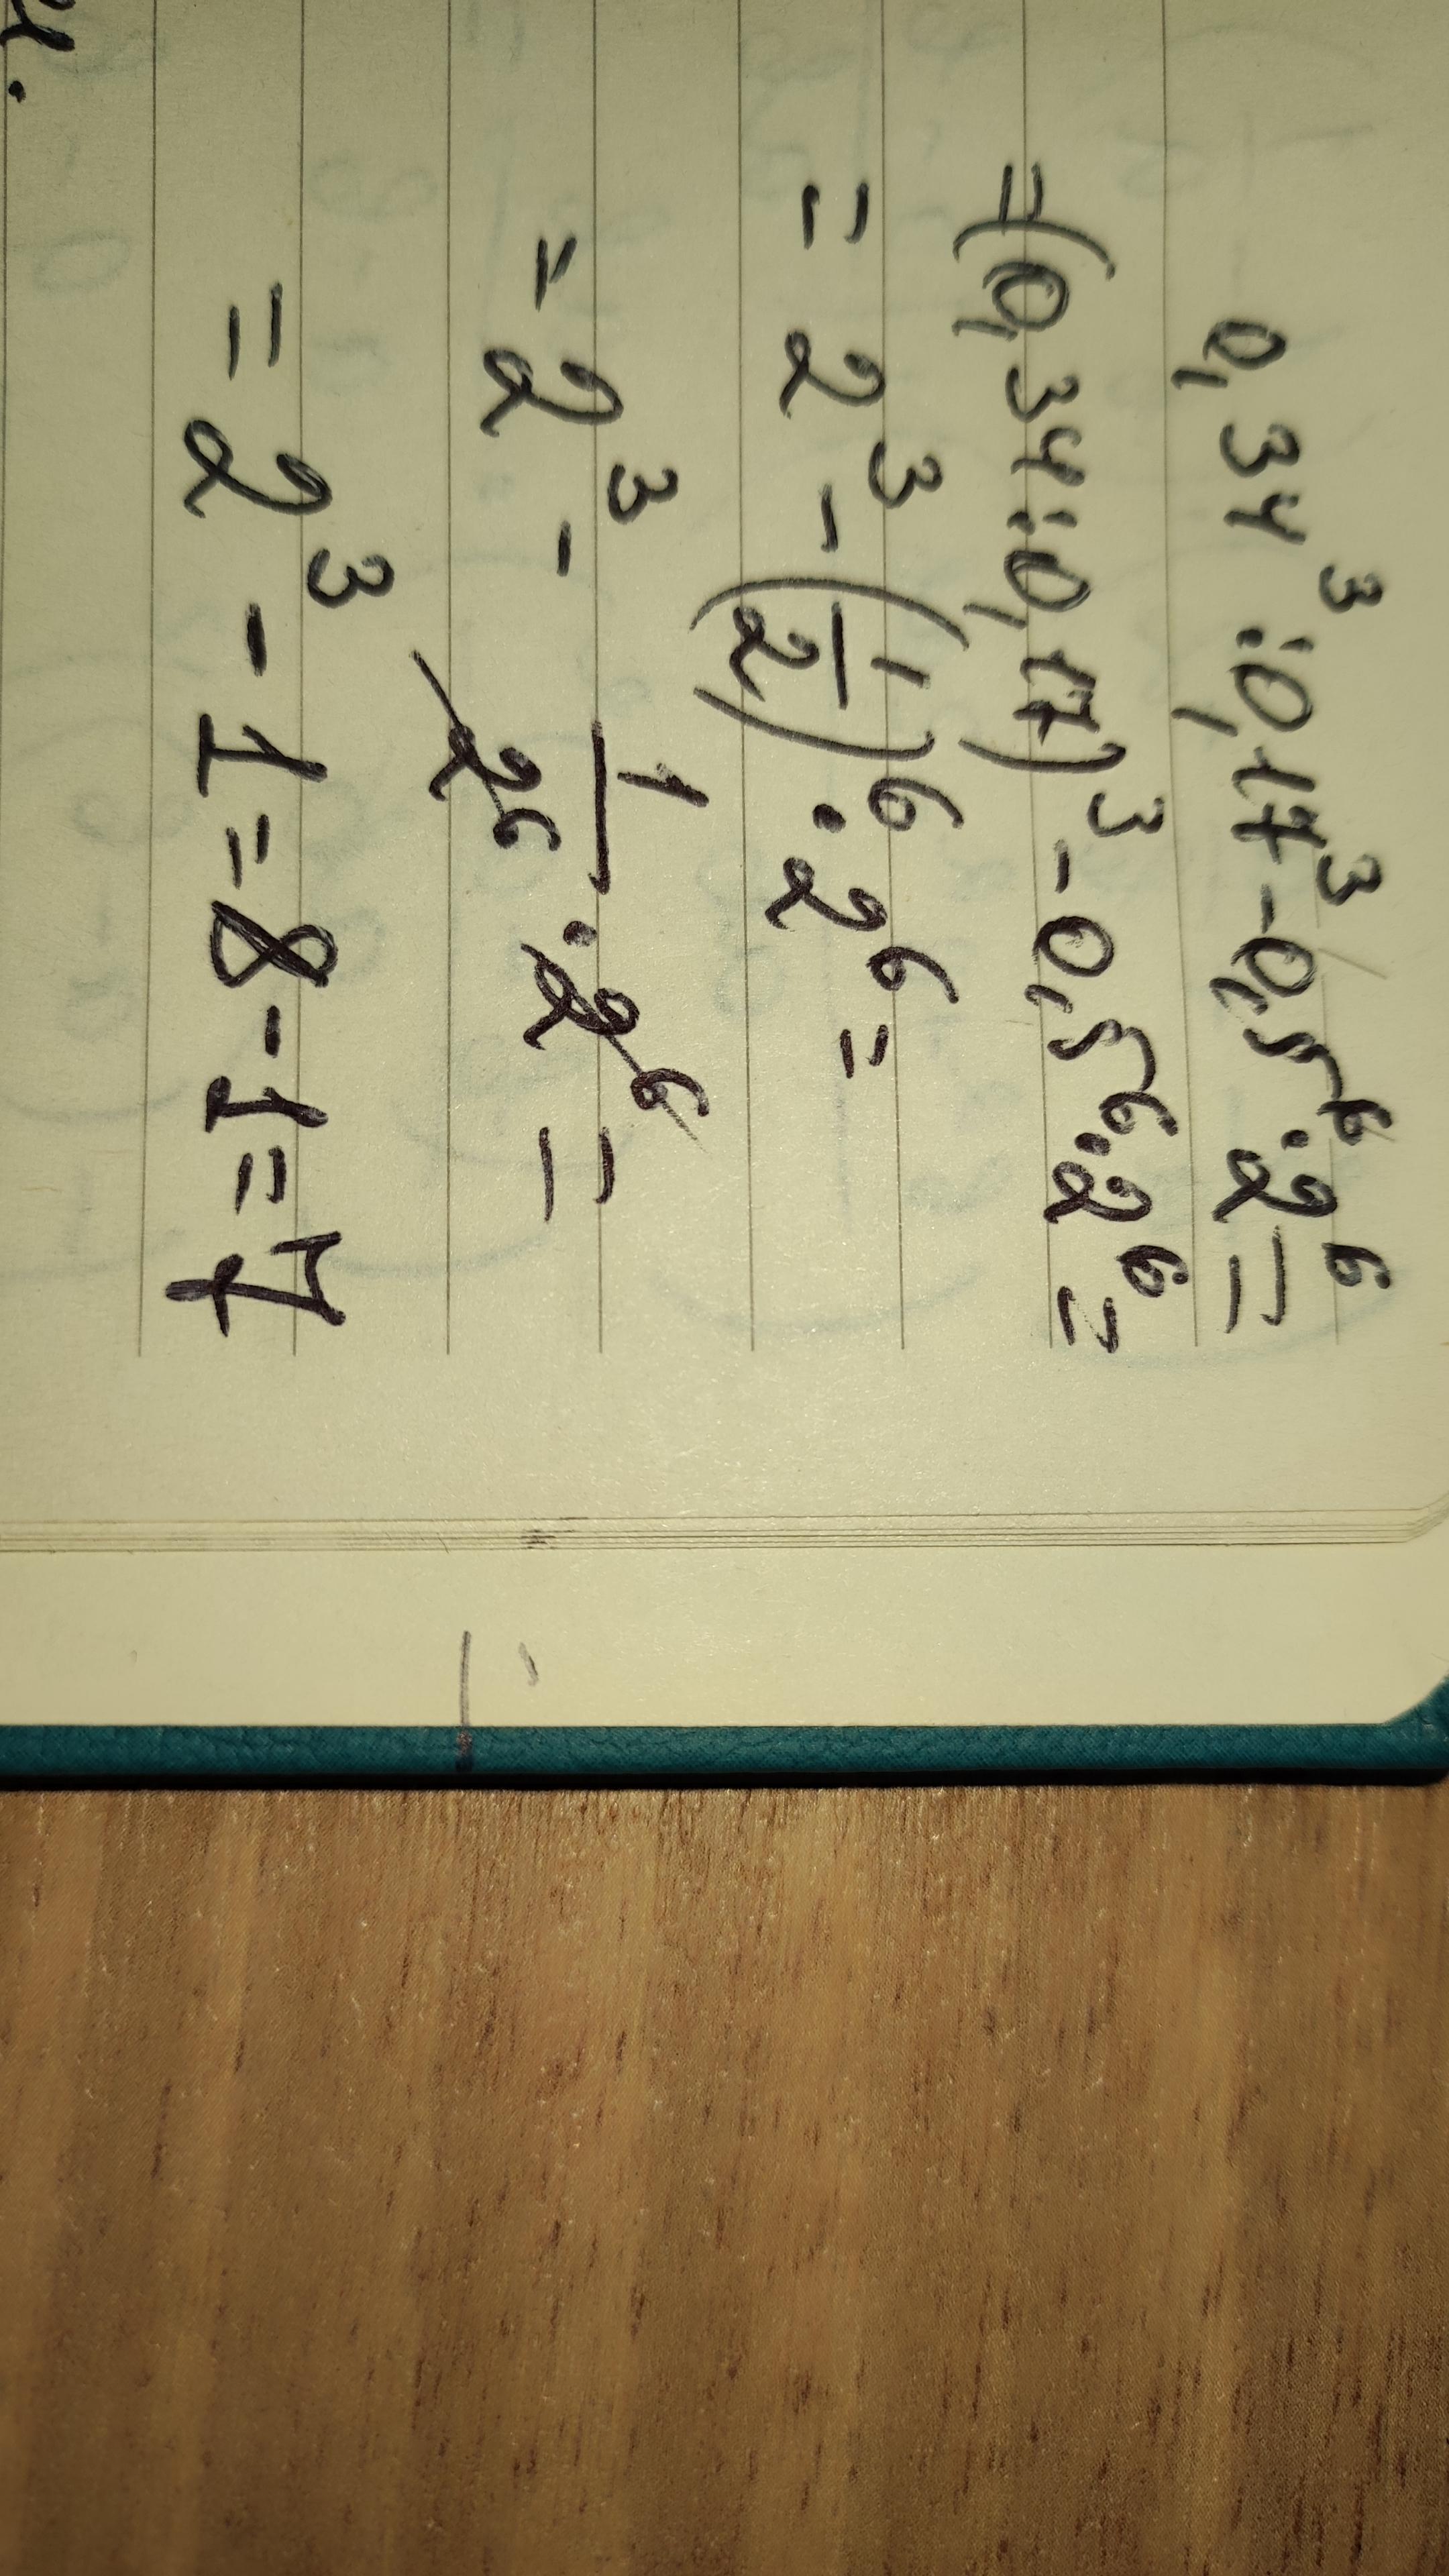 0,34³:0,17³-0,5⁶·2⁶=
=(0,34:0,17)³-0,5⁶·2⁶=
=2³-(1/2)⁶·2⁶=
=2³-1/2⁶·2⁶=
=2³-1=8-1=7